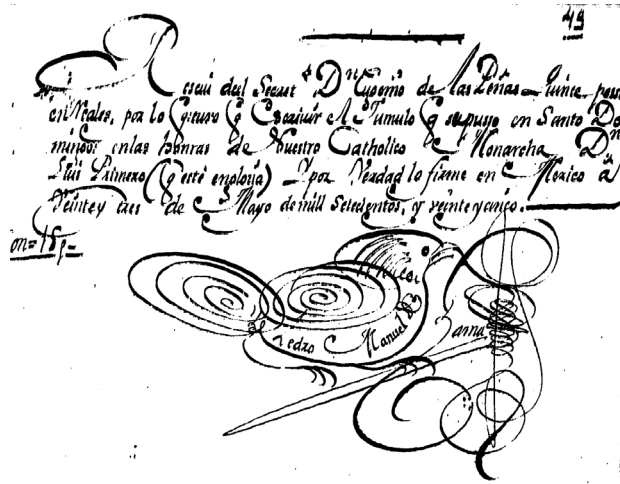 49
Resevi del Secret.º Dn Eugenio de las Peñas Quinze pesos
en Reales, por lo q estuso q Escrivir el Tumulo q se puso en Santo Do
mingo en las honras de Nuestro Catholico Monarcha Dn
Luis Primero (q esté en gloria) Y por Verdad lo firme en Mexico a
Veinte y tres de Mayo de mill Setecientos, y veinte y cinco.
on = 15 p =
Pedro Manuel de
Gama